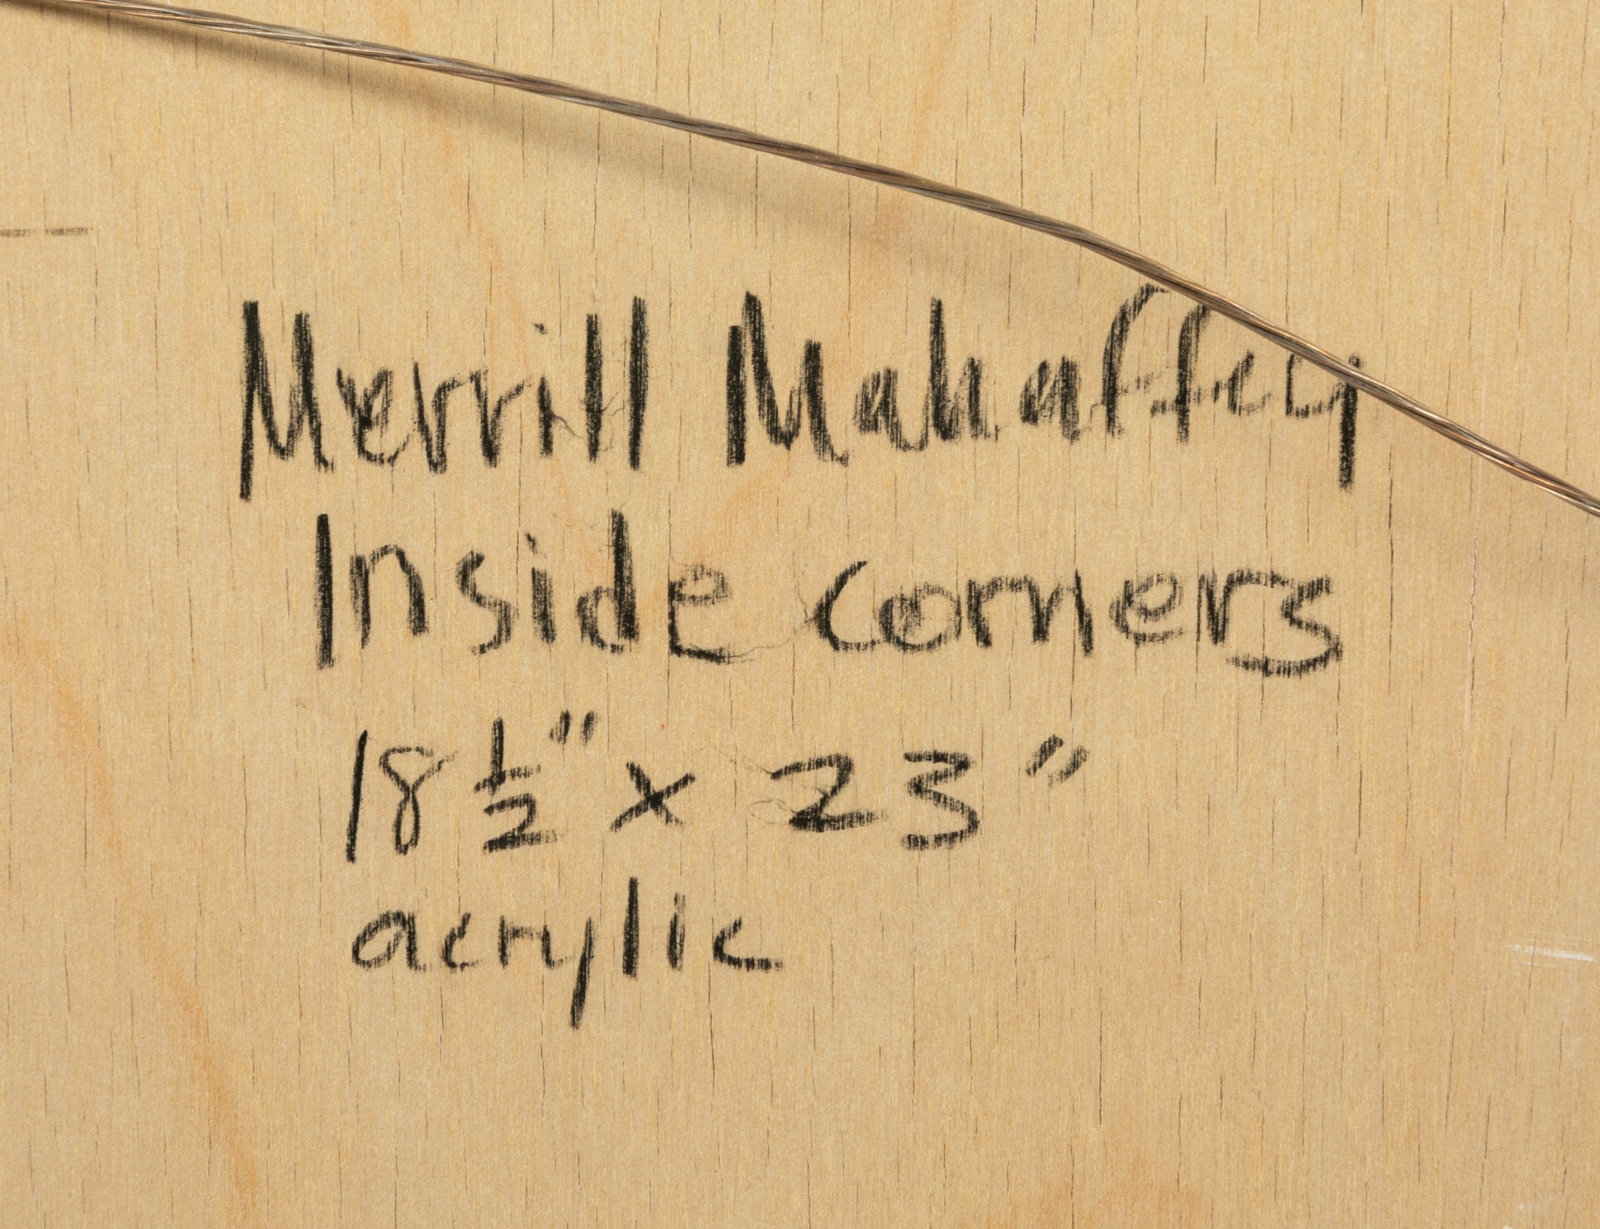 Merrill Mahaffey
Inside corners
18 ½" x 23"
acrylic